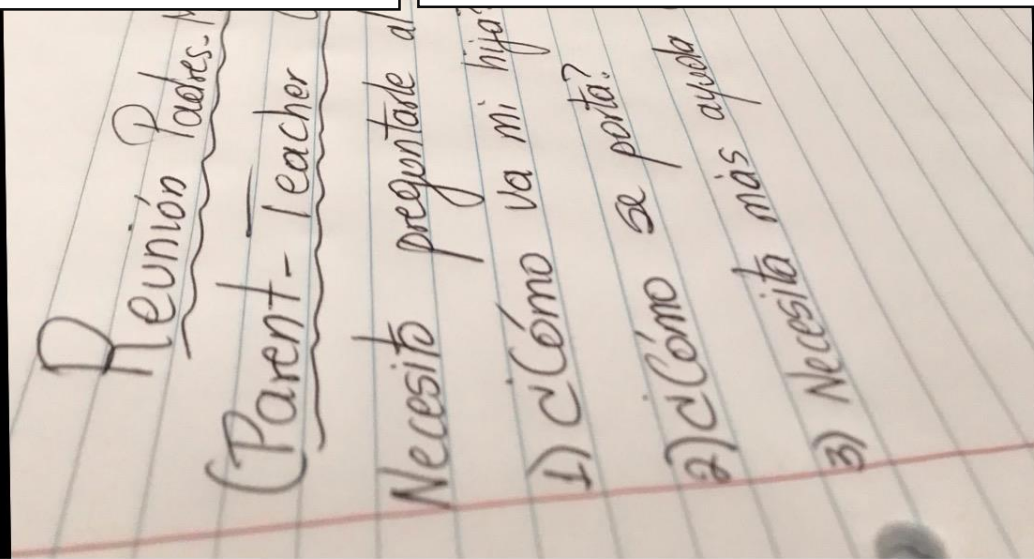 Reunión Padres-
(Parent-Teacher
Necesito preguntarle al
1) ¿Cómo va mi hija?
2) ¿Cómo se porta?
3) Necesita más ayuda